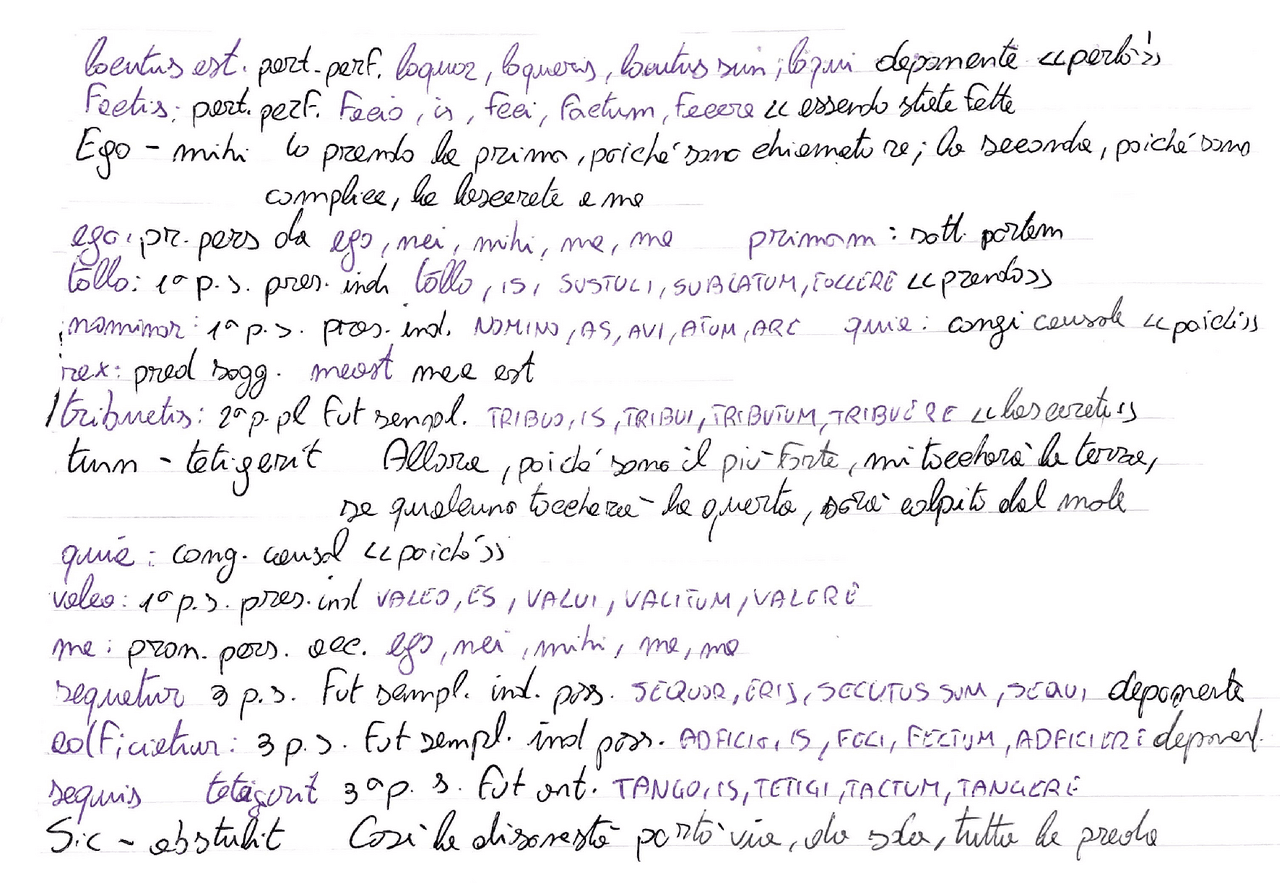 locutus est. part. perf. loquor, loqueris, locutus sum, loqui deponente <<parlò>>
Factis: part. perf. Facio, is, feci, factum, facere << essendo state fatte
Ego - mihi Io prendo la prima, poiché sono chiamato re; la seconda, poiché sono
complice, la lascerete a me
ego: pr. pers da ego, mei, mihi, me, me primam: sott. partem
tollo: 1ª p. s. pres. ind. tollo, IS, SUSTULI, SUBLATUM, TOLLERE <<prendo>>
nominor: 1ª p. s. pres. ind. NOMINO, AS, AVI, ATUM, ARE quia: congi causale <<poiché>>
rex: pred sogg. meast mea est
tribuetis: 2ª p. pl fut sempl. TRIBUO, IS, TRIBUI, TRIBUTUM, TRIBUĔRE <<lascerete>>
tum - tetigerit Allora, poiché sono il più forte, mi toccherà la terza,
se qualcuno toccherà la quarta, sarà colpito dal male
quia: cong. causal <<poiché>>
valeo: 1ª p. s. pres. ind VALEO, ES, VALUI, VALITUM, VALERE
me: pron. pers. acc. ego, mei, mihi, me, me
sequetur 3 p. s. Fut sempl. ind. pass. SEQUOR, ERIS, SECUTUS SUM, SEQUI deponente
adficietur: 3 p. s. Fut sempl. ind pass. ADFICIO, IS, FECI, FECTUM, ADFICERE
sequis tetigerit 3ª p. s. fut ant. TANGO, IS, TETIGI, TACTUM, TANGERE
Sic - abstulit Così la disonestà portò via, da sola, tutta la preda